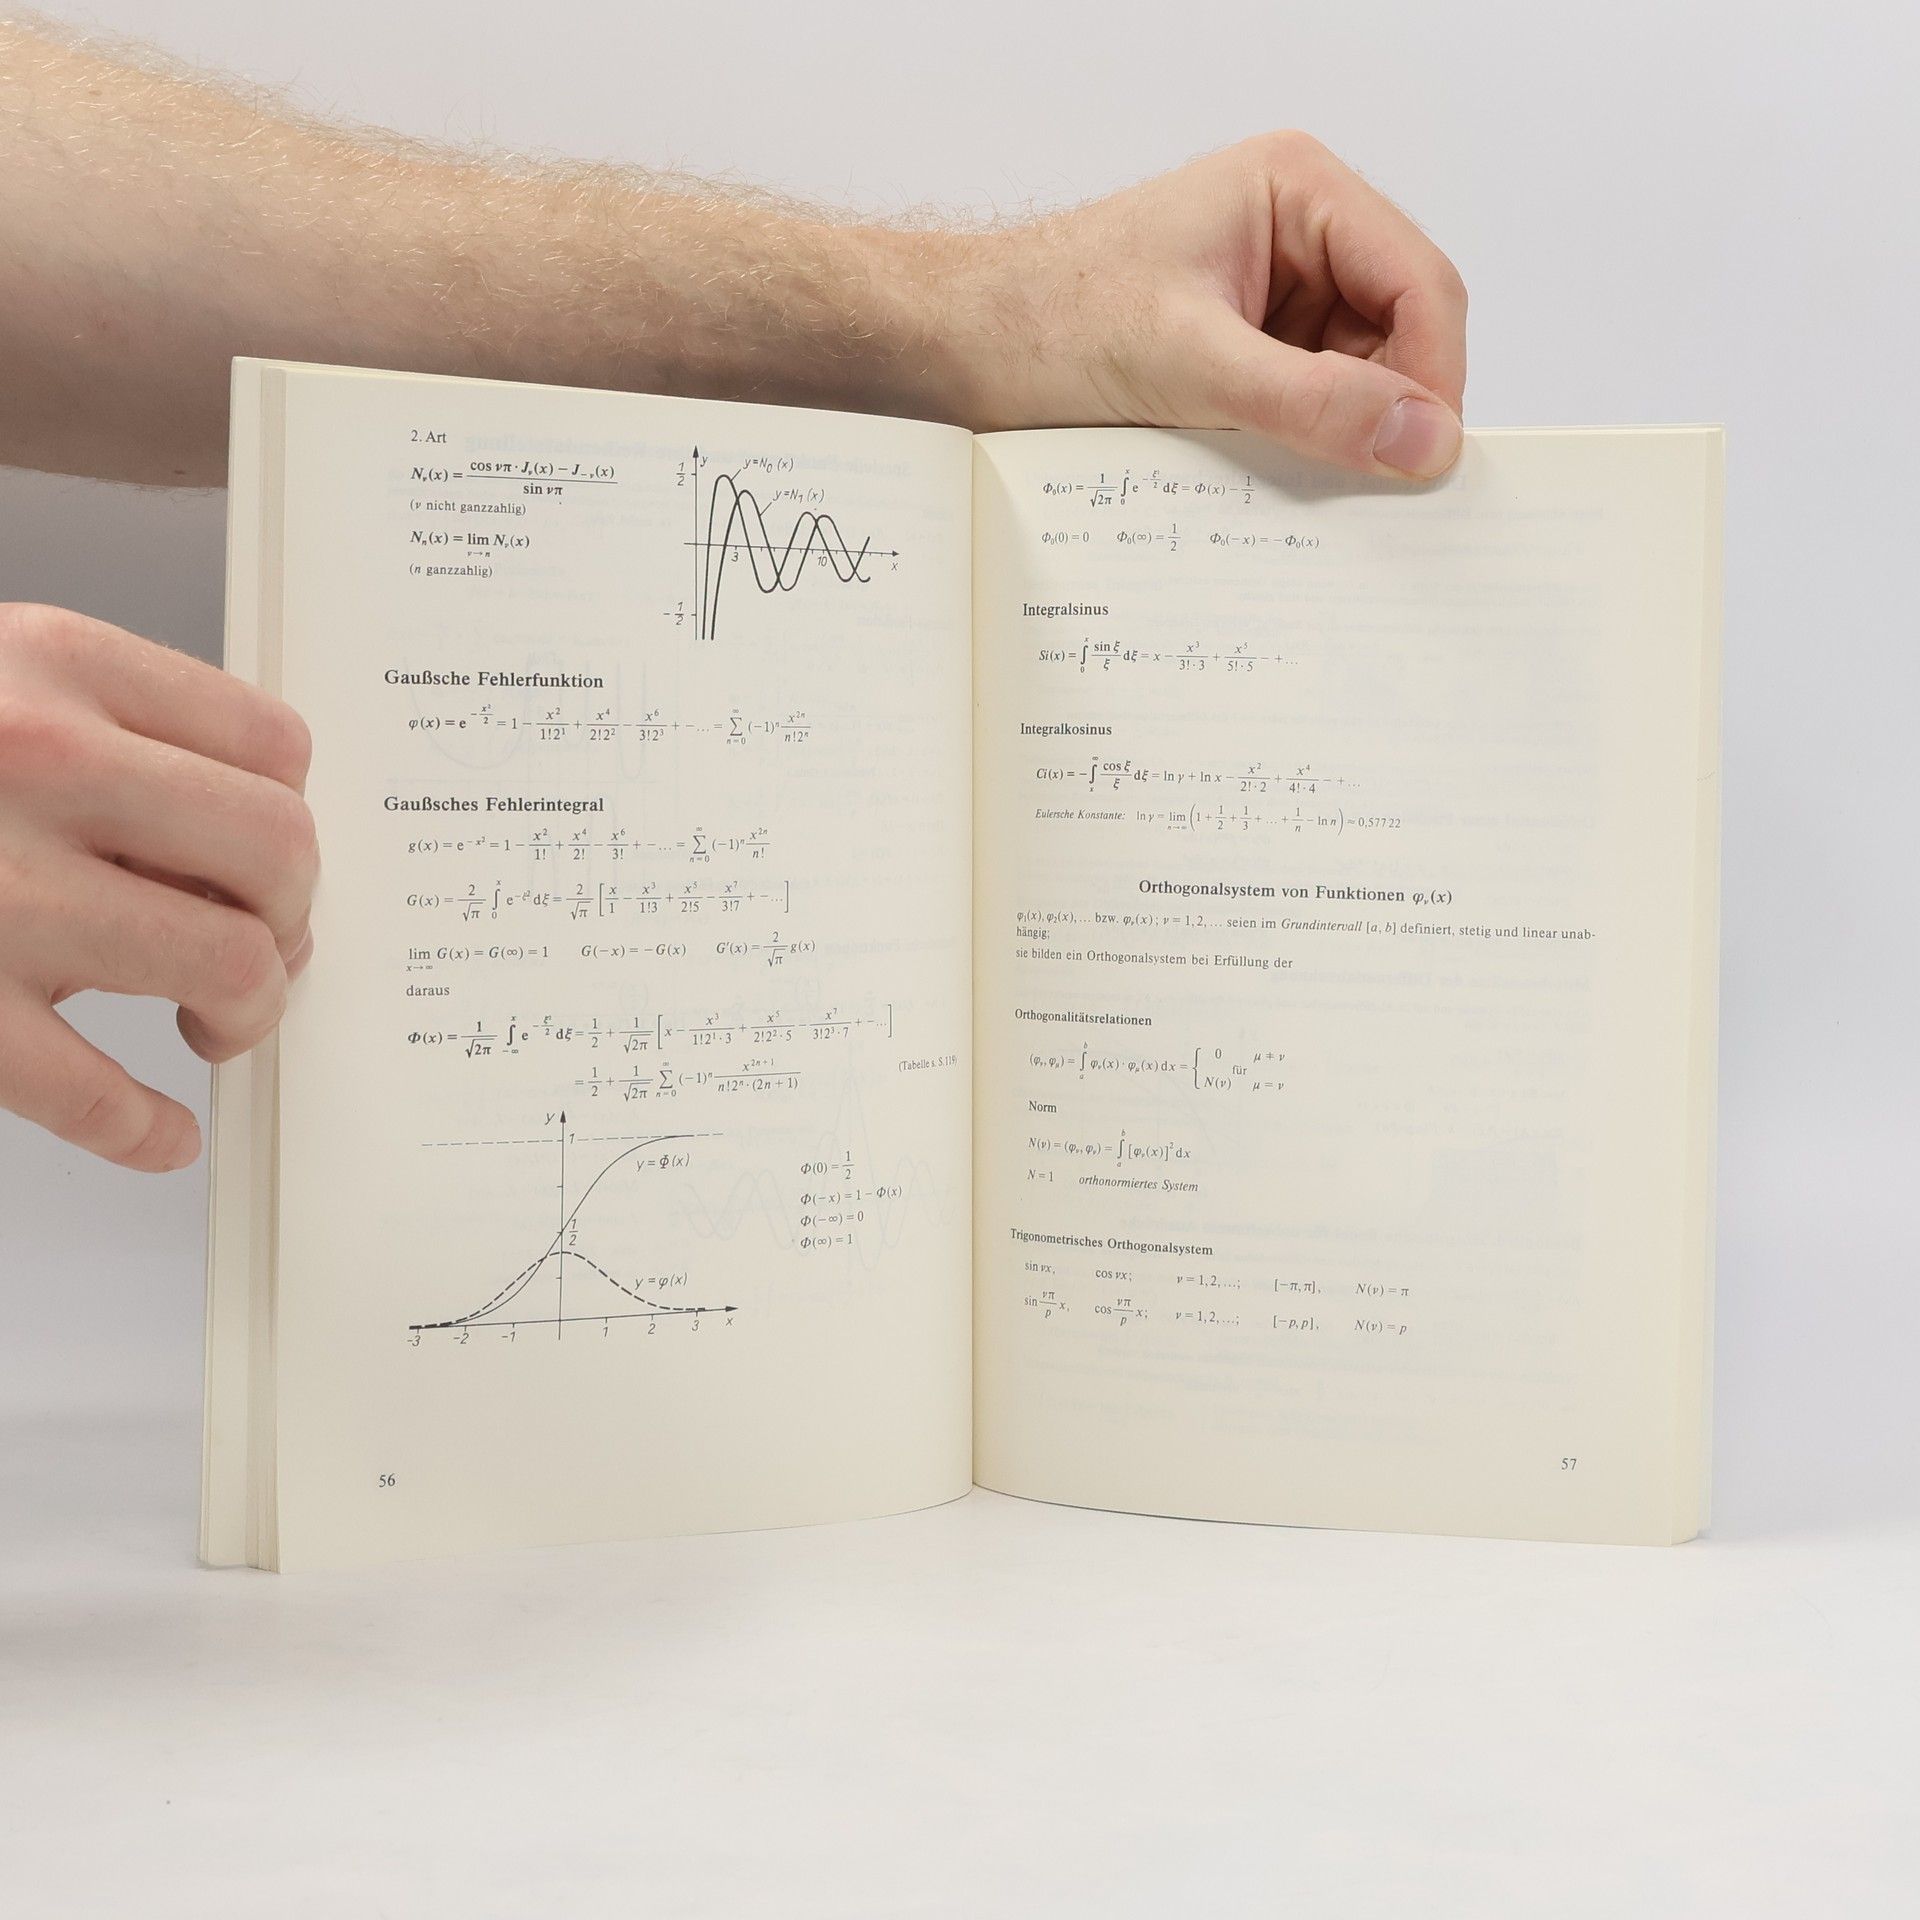 2. Art
N_ν(x) = (cos νπ · J_ν(x) − J_−ν(x)) / sin νπ
(ν nicht ganzzahlig)
N_n(x) = lim_{ν→n} N_ν(x)
(n ganzzahlig)
1/2 y y=N₀(x)
y=N₁(x)
3 10 x
−1/2
Gaußsche Fehlerfunktion
φ(x) = e^(−x²/2) = 1 − x²/(1!2¹) + x⁴/(2!2²) − x⁶/(3!2³) + − … = ∑_{n=0}^{∞} (−1)ⁿ x²ⁿ/(n!2ⁿ)
Gaußsches Fehlerintegral
g(x) = e^(−x²) = 1 − x²/1! + x⁴/2! − x⁶/3! + − … = ∑_{n=0}^{∞} (−1)ⁿ x²ⁿ/n!
G(x) = 2/√π ∫₀ˣ e^(−ξ²) dξ = 2/√π [x/1 − x³/(1!3) + x⁵/(2!5) − x⁷/(3!7) + − …]
lim_{x→∞} G(x) = G(∞) = 1 G(−x) = −G(x) G′(x) = 2/√π g(x)
daraus
Φ(x) = 1/√(2π) ∫_{−∞}^{x} e^(−ξ²/2) dξ = 1/2 + 1/√(2π) [x − x³/(1!2¹·3) + x⁵/(2!2²·5) − x⁷/(3!2³·7) + − …]
= 1/2 + 1/√(2π) ∑_{n=0}^{∞} (−1)ⁿ x²ⁿ⁺¹/(n!2ⁿ·(2n + 1)) (Tabelle s. S. 119)
y
1
y = Φ(x)
1/2
y = φ(x)
−3 −2 −1 1 2 3 x
Φ(0) = 1/2
Φ(−x) = 1 − Φ(x)
Φ(−∞) = 0
Φ(∞) = 1
56
Φ₀(x) = 1/√(2π) ∫₀ˣ e^(−ξ²/2) dξ = Φ(x) − 1/2
Φ₀(0) = 0 Φ₀(∞) = 1/2 Φ₀(−x) = −Φ₀(x)
Integralsinus
Si(x) = ∫₀ˣ sin ξ/ξ dξ = x − x³/(3!·3) + x⁵/(5!·5) − + …
Integralkosinus
Ci(x) = −∫ₓ^∞ cos ξ/ξ dξ = ln γ + ln x − x²/(2!·2) + x⁴/(4!·4) − + …
Eulersche Konstante: ln γ = lim_{n→∞} (1 + 1/2 + 1/3 + … + 1/n − ln n) ≈ 0,577 22
Orthogonalsystem von Funktionen φ_ν(x)
φ₁(x), φ₂(x), … bzw. φ_ν(x); ν = 1, 2, … seien im Grundintervall [a, b] definiert, stetig und linear unab-
hängig;
sie bilden ein Orthogonalsystem bei Erfüllung der
Orthogonalitätsrelationen
(φ_ν, φ_μ) = ∫ₐᵇ φ_ν(x) · φ_μ(x) dx = { 0 für μ ≠ ν
N(ν) μ = ν
Norm
N(ν) = (φ_ν, φ_ν) = ∫ₐᵇ [φ_ν(x)]² dx
N = 1 orthonormiertes System
Trigonometrisches Orthogonalsystem
sin νx, cos νx; ν = 1, 2, …; [−π, π], N(ν) = π
sin νπ/p x, cos νπ/p x; ν = 1, 2, …; [−p, p], N(ν) = p
57